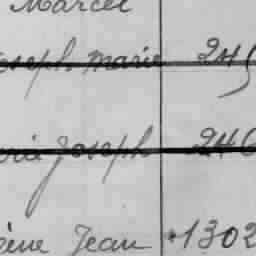 Marcel
oseph. Marie 245
rie Joseph 240
ène Jean 1302